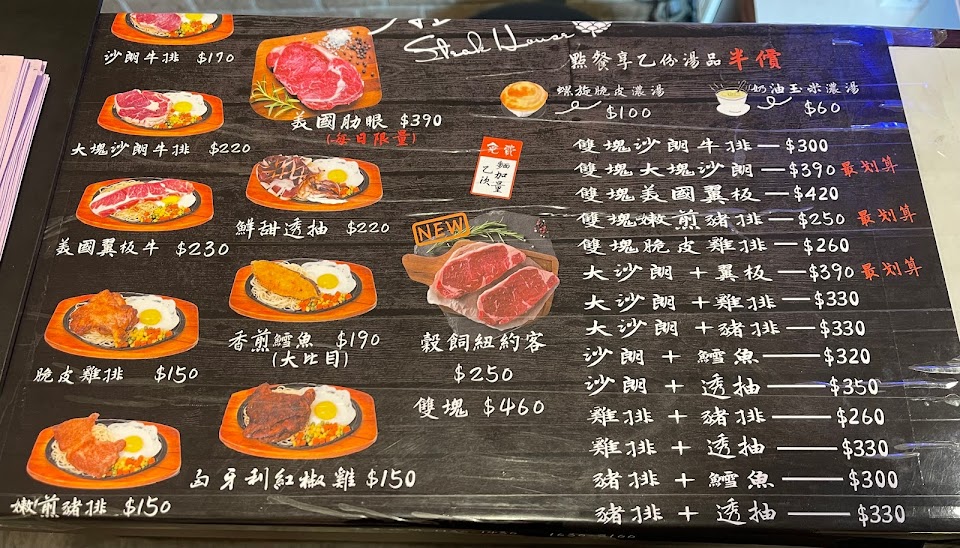 Steak House
沙朗牛排 $170
大塊沙朗牛排 $220
美國翼板牛 $230
脆皮雞排 $150
嫩煎豬排 $150
美國肋眼 $390
(每日限量)
鮮甜透抽 $220
香煎鱈魚 $190
(大比目)
匈牙利紅椒雞 $150
免費
麵加量
乙次
NEW
穀飼紐約客
$250
雙塊 $460
點餐享乙份湯品半價
螺旋脆皮濃湯
$100
奶油玉米濃湯
$60
雙塊沙朗牛排 — $300
雙塊大塊沙朗 — $390 最划算
雙塊美國翼板 — $420
雙塊嫩煎豬排 — $250 最划算
雙塊脆皮雞排 — $260
大沙朗 + 翼板 — $390 最划算
大沙朗 + 雞排 — $330
大沙朗 + 豬排 — $330
沙朗 + 鱈魚 — $320
沙朗 + 透抽 — $350
雞排 + 豬排 — $260
雞排 + 透抽 — $330
豬排 + 鱈魚 — $300
豬排 + 透抽 — $330